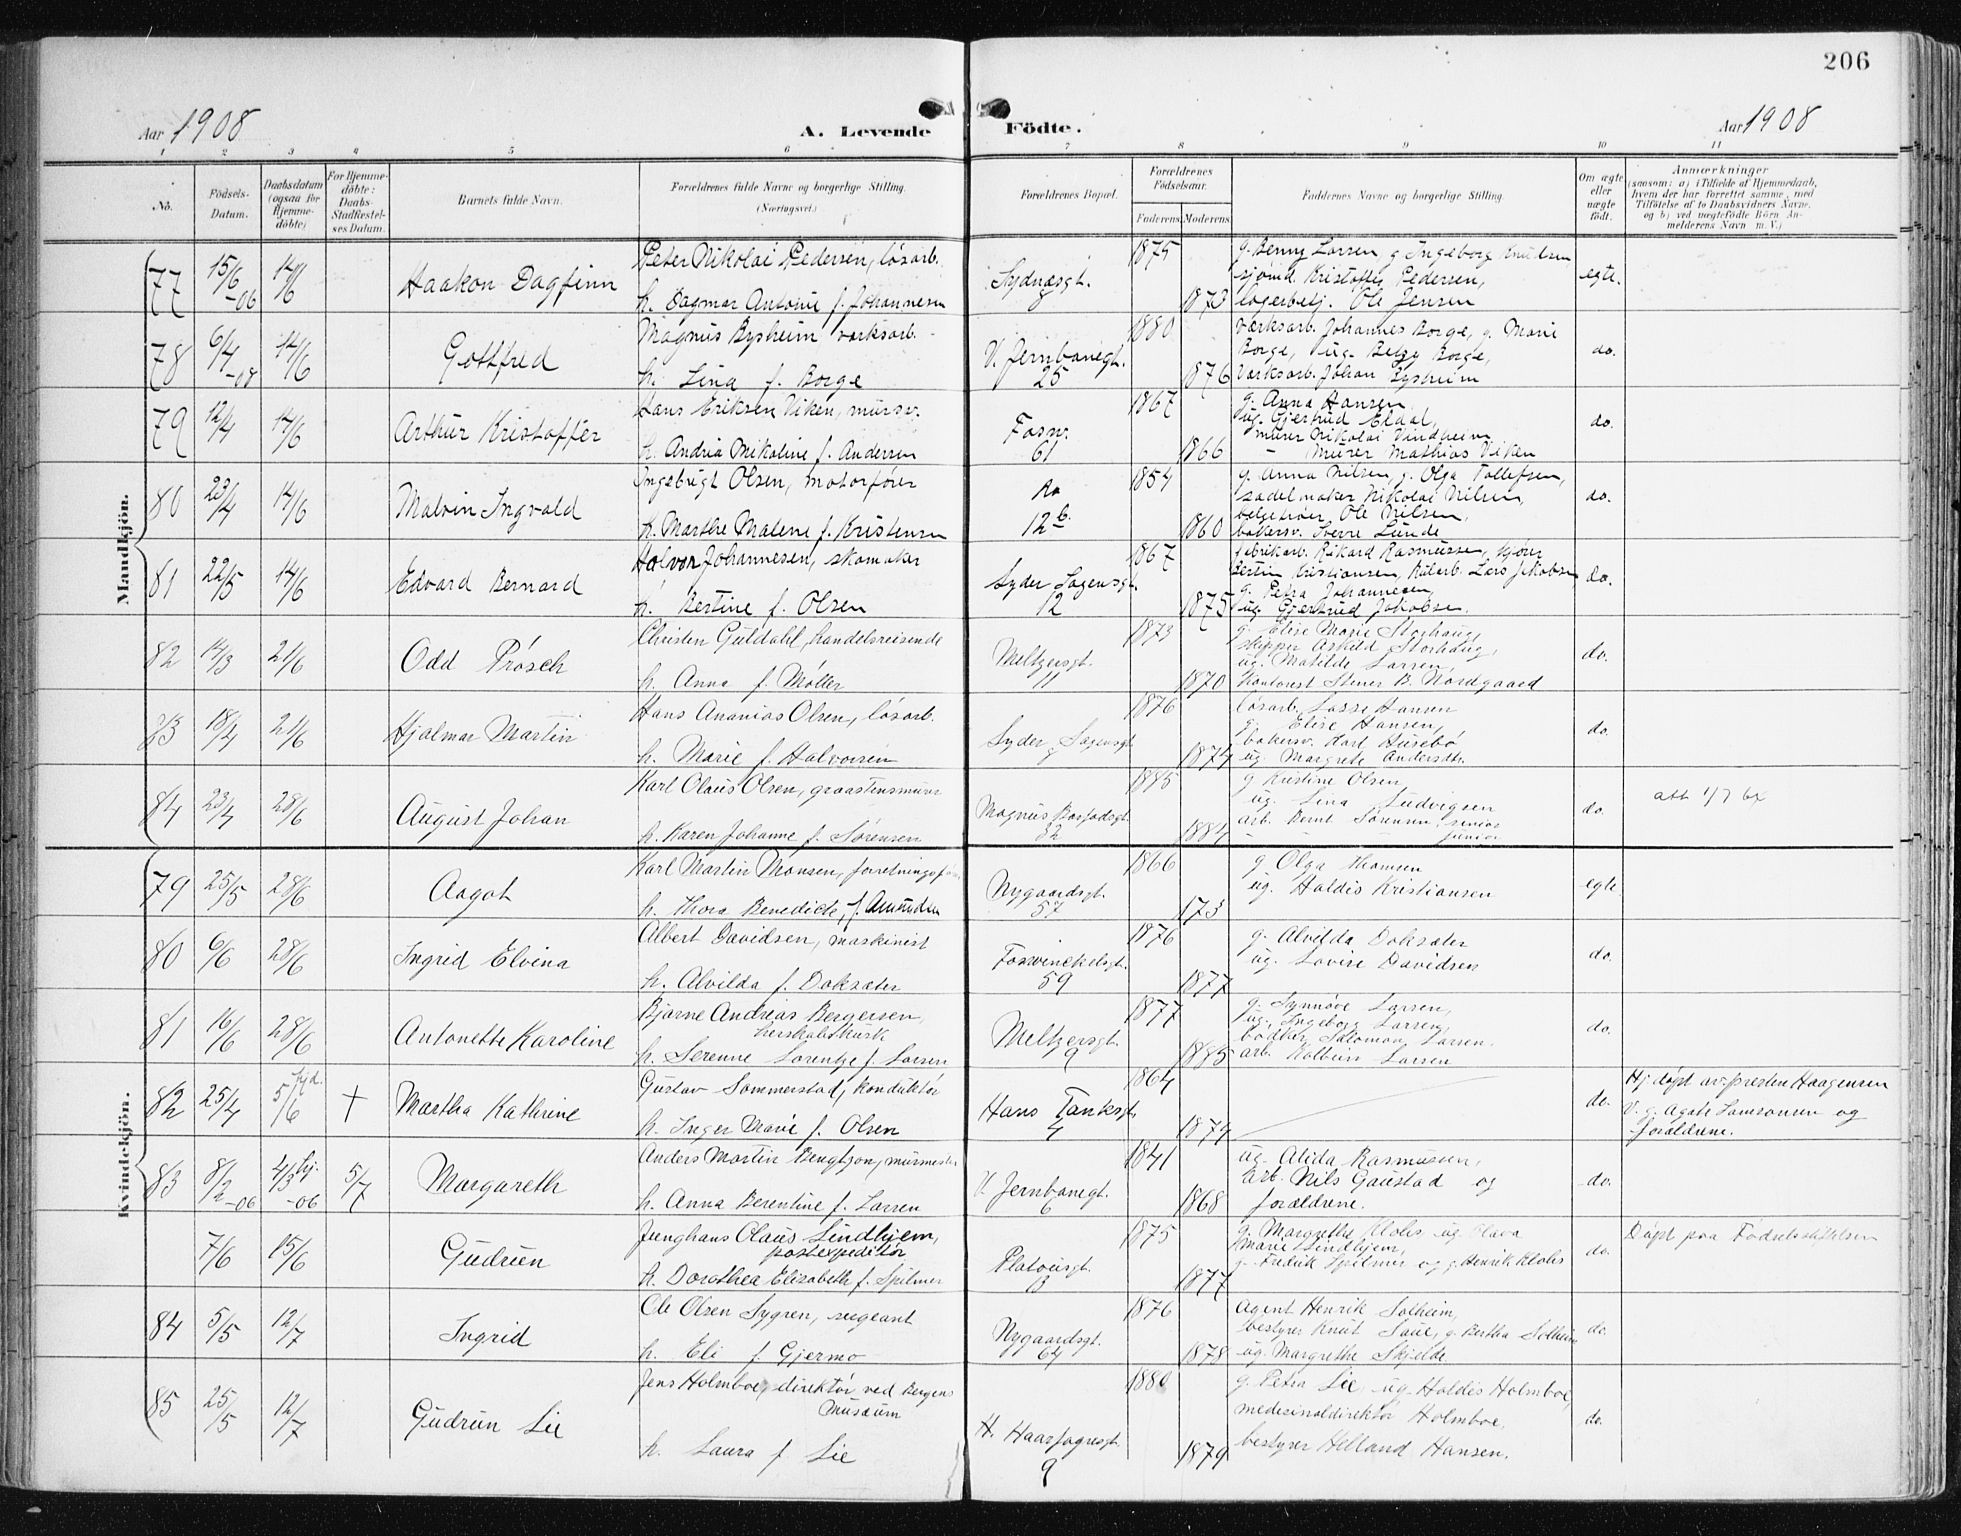 206
Aar 1908
A. Levende
Födte.
Aar 1908
1 2 3 4 5 6 7 8 9 10 11
No.
Födsels-Datum.
Daabsdatum (ogsaa for Hjemme-döbte)
For Hjemme-döbte: Daabs-Stadfæstel-ses Datum.
Barnets fulde Navn.
Forældrenes fulde Navne og borgerlige Stilling.
(Næringsvei.)
Forældrenes Bopæl.
Forældrenes Födselsaar.
Faderens Moderens
Faddernes Navne og borgerlige Stilling.
Om ægte eller uægte födt.
Anmærkninger
(saasom: a) i Tilfælde af Hjemmedaab,
hvem der har forrettet samme, med
Tilföielse af to Daabsvidners Navne,
og b) ved uægtefödte Börn An-
melderens Navn m. V.)
Mandkjön.
77 15/6 -06 14/6 Haakon Dagfinn
Peter Nikolai Pedersen, løsarb.
h. Dagmar Antonie f. Johannesen
Sydnæsgt. 8
1875 1873
g. Benny Larsen g. Ingeborg Knudsen
sjømd. Kristoffer Pedersen,
lagerbetj. Ole Jensen
egte.
78 6/4 -08 14/6 Gottfred
Magnus Bysheim værksarb.
h. Lina f. Borge
V. Jernbanegt. 25
1880 1876
Værksarb. Johannes Borge, g. Marie
Borge, ug. Betzy Borge,
Værksarb. Johan Bysheim
do.
79 12/4 14/6 Arthur Kristoffer
Hans Eriksen Viken, mursv.
h. Andrea Nikoline f. Andersen
Fosw. 61
1867 1866
g. Anna Hansen
ug. Gjertrud Eldal,
murer Nikolai Vindheim
- Murer Mathias Viken
do.
80 23/4 14/6 Malvin Ingvald
Ingebrigt Olsen, motorfører
h. Marthe Malene f. Kristensen
12 b.
1854 1860
g. Anna Nilsen, g. Olga Tollefsen,
sadelmaker Nikolai Nilsen,
Ole Nilsen,
bakersv. Sverre Lunde
do.
81 22/5 14/6 Edvard Bernard
Halvor Johannesen, skomaker
h. Bertine f. Olsen
Syder Sagensgt. 12
1867 1875
fabrikarb. Rikard Rasmussen, kjører
Bertin Kristiansen, Lars Jakobsen
g. Petra Johannesen
ug. Gjertrud Jakobsen.
do.
82 14/3 21/6 Odd Prösch
Christen Guldahl, handelsreisende
h. Anna f. Møller
Meltzersgt. 11
1873 1870
g. Elise Marie Storhaug
skipper Askild Storhaug,
ug. Matilde Larsen,
Kontorist Stener B. Nordgaard
do.
83 18/4 21/6 Hjalmar Martin
Hans Ananias Olsen, løsarb.
h. Marie f. Halvorsen
Syder Sagensgt. 8
1876 1874
løsarb. Lasse Hansen
g. Elise Hansen,
bakersv. Karl Husebø
ug. Margrete Andersdtr.
do.
84 23/4 28/6 August Johan
Karl Olaus Olsen, graastensmurer
h. Karen Johanne f. Sørensen
Magnus Barfodsgt. 32
1885 1884
g. Kristine Olsen
ug. Lina Ludvigsen
arb. Bernt Sørensen, senior
- - - junior
do.
att 1/7
Kvindekjön.
79 25/5 28/6 Aagot
Karl Martin Monsen, forretningsfører
h. Thora Benedicte, f. Amundsen
Nygaardsgt. 57
1866 173
g. Olga Thomsen
ug. Haldis Kristiansen
egte
80 6/6 28/6 Ingrid Elvina
Albert Davidsen, maskinist
h. Alvilda f. Doksæter
Foswinckelsgt. 59
1876 1877
g. Alvilda Doksæter
ug. Lovise Davidsen
do.
81 16/6 28/6 Antonette Karoline
Bjarne Andreas Bergersen,
herskabskusk
h. Serenne Lorentze f. Larsen
Meltzersgt. 9
1877 1885
g. Synnøve Larsen,
ug. Ingeborg Larsen,
bødker Salomon Larsen.
arb. Kolbein Larsen
do.
82 25/4 hjd. 5/6 + Martha Kathrine
Gustav Sommerstad, konduktør
h. Inger Marie f. Olsen
Hans Tanksgt. 4
1864 1874
do.
Hj.døpt av presten Haagensen
V. g. Agate Samsonsen og
forældrene.
83 8/2 -06 4/3 hj. -06 5/7 Margareth
Anders Martin Bengtzon, murmester
h. Anna Berentine f. Larsen
V. Jernbanegt. 6
1841 1868
ug. Alida Rasmussen,
arb. Nils Gaustad og
forældrene.
do.
7/6 15/6 Gudrun
Junghans Olaus Lindhjem,
postexpeditör
h. Dorothea Elizabeth f. Spilmer
Platousgt. 13
1875 1877
g. Margrethe Klohs, ug. Olava
Marie Lindhjem,
g. Fredrik Spilmer og g. Henrik Klohs
do.
Døpt paa Fødselsstiftelsen
84 5/5 12/7 Ingrid
Ole Olsen Sygren, sergeant
h. Eli f. Gjermo
Nygaardsgt. 64
1876 1878
Agent Henrik Solheim,
bestyrer Knut Saue, g. Bertha Solheim
ug. Margrethe Skjelde
do.
85 25/5 12/7 Gudrun Lie
Jens Holmboe, direktør ved Bergens
Museum
h. Laura f. Lie
H. Haarfagresgt. 9
1880 1879
g. Petra Lie, ug. Haldis Holmboe,
medicinaldirektør Holmboe.
bestyrer Helland Hansen.
do.